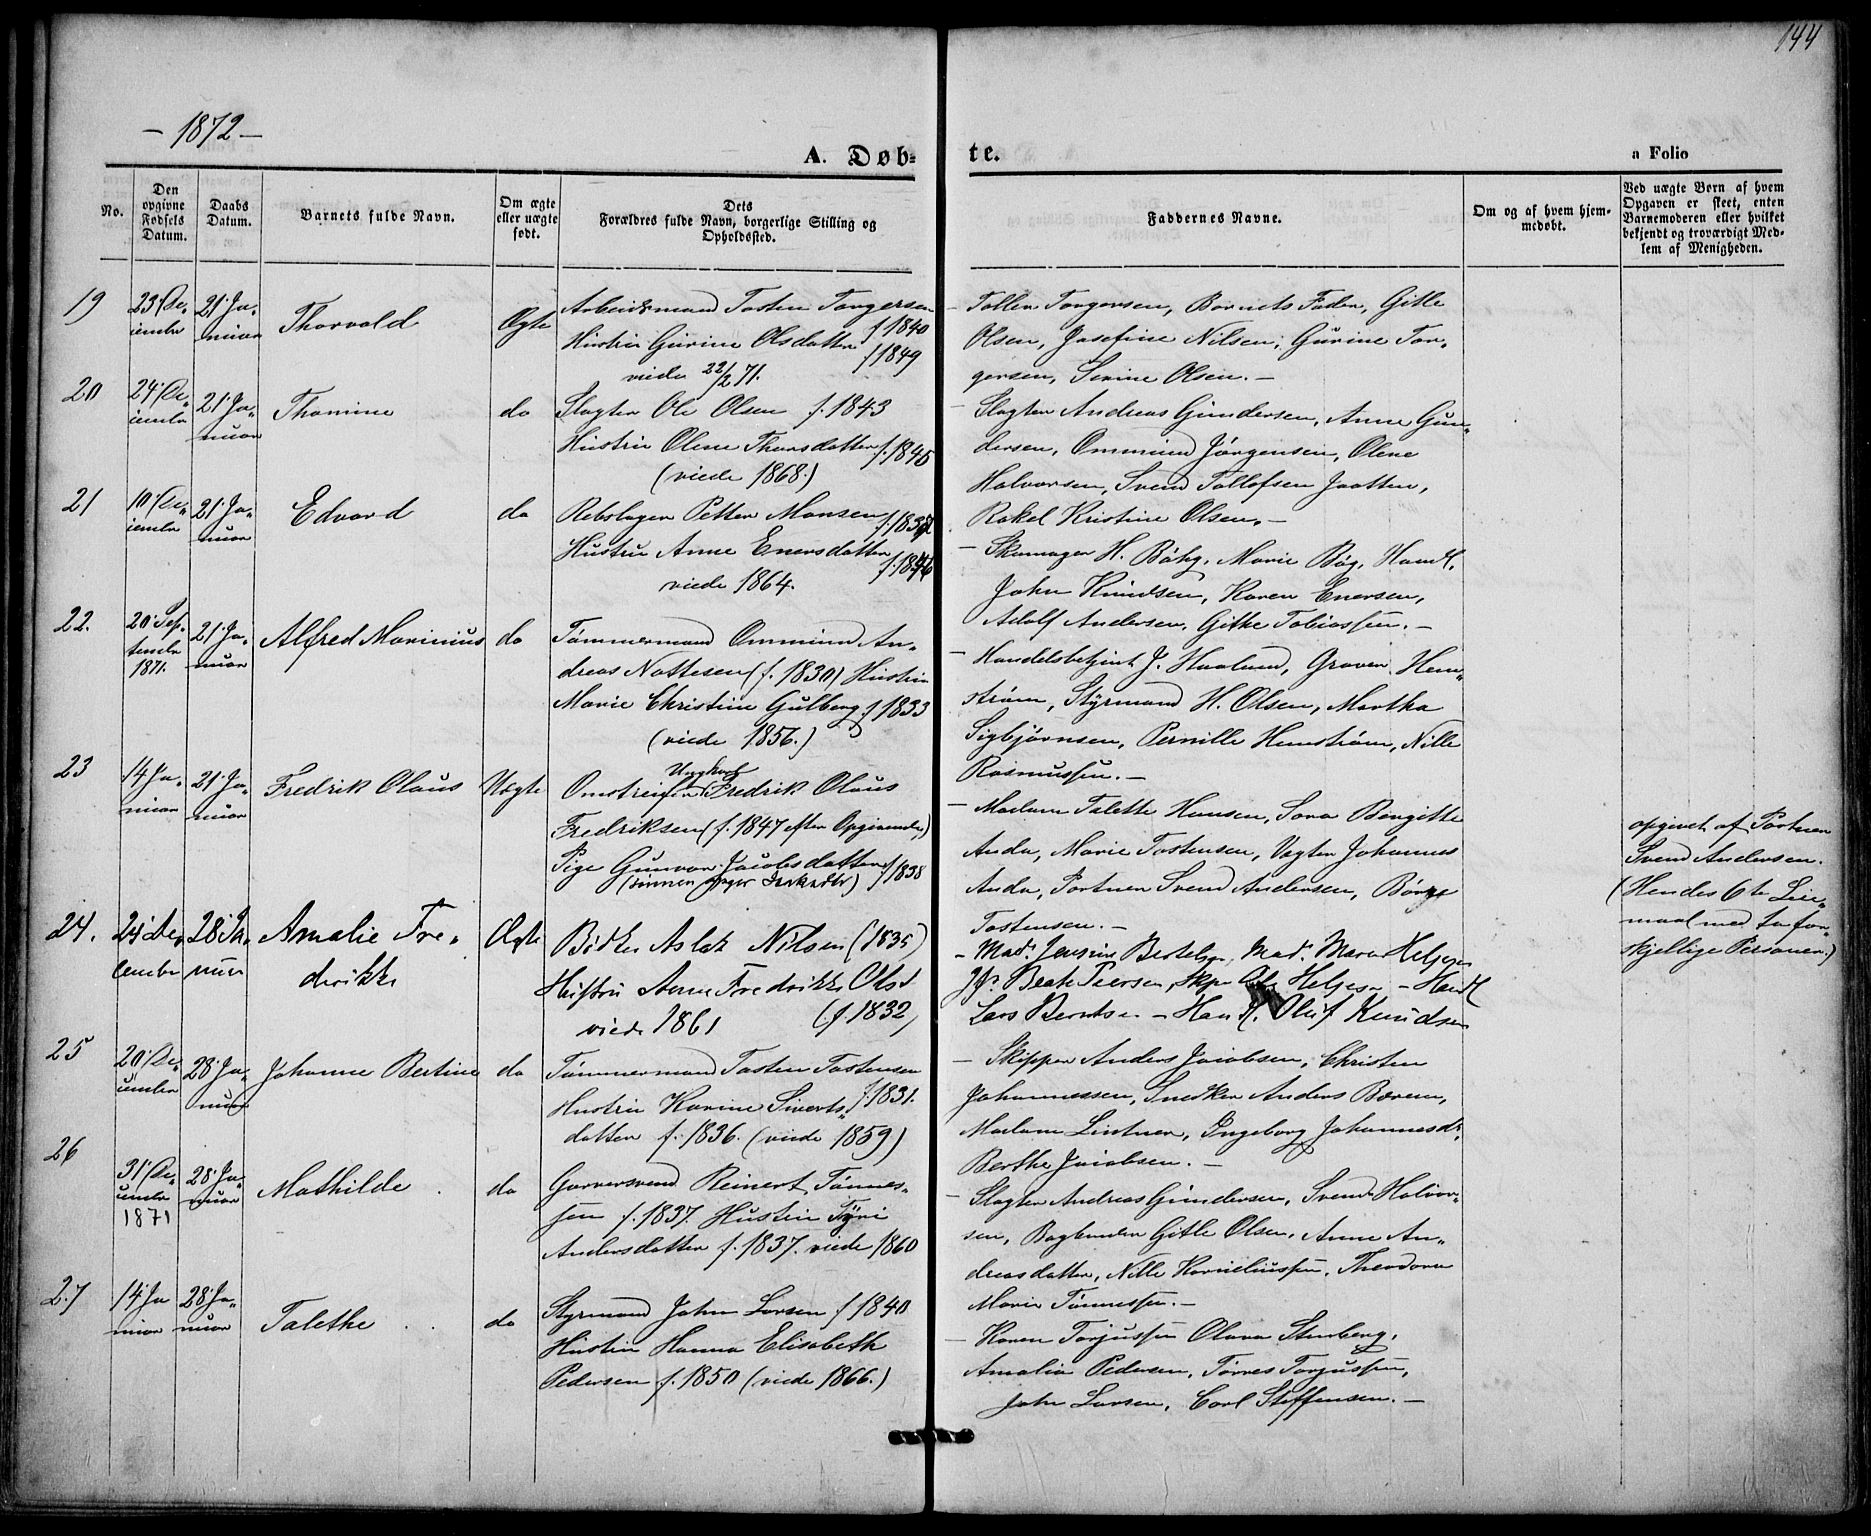 144
- 1872 -
A. Døb-
te.
a Folio
No.
Den opgivne Fødsels Datum.
Daabs Datum.
Barnets fulde Navn.
Om ægte eller uægte født.
Dets Forældres fulde Navn, borgerlige Stilling og Opholdssted.
Faddernes Navne.
Om og af hvem hjemmedøbt.
Ved uægte Børn af hvem Opgaven er skeet, enten Barnemoderen eller hvilket bekjendt og troværdigt Medlem af Menigheden.
19
23 De-
cember
21 Ja-
nuar
Thorvald
Ægte
Arbeidsmand Tosten Torgersen
f 1840
Hustru Gurine Olsdatter
f 1849
viede 22/2 71.
Tollev Torgersen, Barnets Fader, Gitle
Olsen, Josefine Nilsen, Gurine Tor-
gersen, Serine Olsen. -
20
24 De-
cember
21 Ja-
nuar
Thomine
do
Slagter Ole Olsen f. 1843
Hustru Olene Thorsdatter f. 1845
(viede 1868.)
- Slagter Andreas Gundersen, Anne Gun-
dersen, Ommund Jørgensen, Olene
Halvorsen, Svend Tollefsen Jaatten,
Rakel Kristine Olsen. -
21
10 De-
cember
21 Ja-
nuar
Edvard
do
Rebslager Petter Monsen
Hustru Anne Enersdatter
viede 1864.
- Skomager H. Bøhg, Marie Bøg, Handl.
John Knudsen, Karen Enersen,
Adolf Andersen, Gitke Tobiassen. -
22.
20 Sep-
tember
1871.
21 Ja-
nuar
Alfred Marinius
do
Tømmermand Ommund An-
dreas Nattesen (f. 1830) Hustru
Marie Christine Gulberg f 1833
(viede 1856.)
- Handelsbetjent J. Haaland, Graver Hem-
strøm, Styrmand H. Olsen, Martha
Sigbjørnsen, Pernille Hemstrøm, Nille
Rasmussen. -
23
14 Ja-
nuar
21 Ja-
nuar
Fredrik Olaus
Uægte
Ungkarl
Omstreifer Fredrik Olaus
Fredriksen (f. 1847 efter Opgivende)
Pige Gunvor Jacobsdatter f 1838
- Madam Talette Hansen, Sara Bergitte
Anda, Marie Tostensen, Vægter Johannes
Anda, Portner Svend Andersen, Børge
Tostensen. -
opgivet af Portner
Svend Andersen.
(Hendes 6te Leier-
maal med to for-
skjellige Personer.)
24.
24 De-
cember
28 Ja-
nuar
Amalie Fre-
derikke
Ægte
Bødker Aslak Nilsen (1835)
Hustru Anne Fredrikke Olsd
viede 1861 (f. 1832)
- Mad. Jensine Bertelsen, Mad. Maren Helgesen
Jfr. Beate Peersen, Skpr Ole Helgesen - Handl
Lars Berntsen - Handl. Oluf Knudsen
25
20 De-
cember
28 Ja-
nuar
Johanne Bertine
do
Tømmermand Tosten Tostensen
f 1831.
Hustru Karine Siverts-
datter f. 1836. (viede 1859)
- Skipper Anders Jacobsen, Christen
Johannessen, Snedker Anders Bærem,
Madam Lintner, Ingeborg Johannesdr,
Berthe Jacobsen. -
26
31 De-
cember
1871
28 Ja-
nuar
Mathilde
do
Garversvend Reinert Tønnes-
sen f. 1837. Hustru Tyri
Andersdatter f. 1837. viede 1860
- Slagter Andreas Gundersen, Svend Halvor-
sen, Bogbinder Gitle Olsen, Anne An-
dreasdatter, Nille Korneliussen, Theodora
Marie Tønnessen. -
27
14 Ja
nuar
28 Ja-
nuar
Talethe
do
Styrmand John Larsen f 1840
Hustru Hanna Elisabeth
Pedersen f. 1850 (viede 1866.)
- Karen Torjussen Olava Stenberg,
Amalia Pedersen, Tørres Torjussen,
John Larsen, Carl Steffensen. -